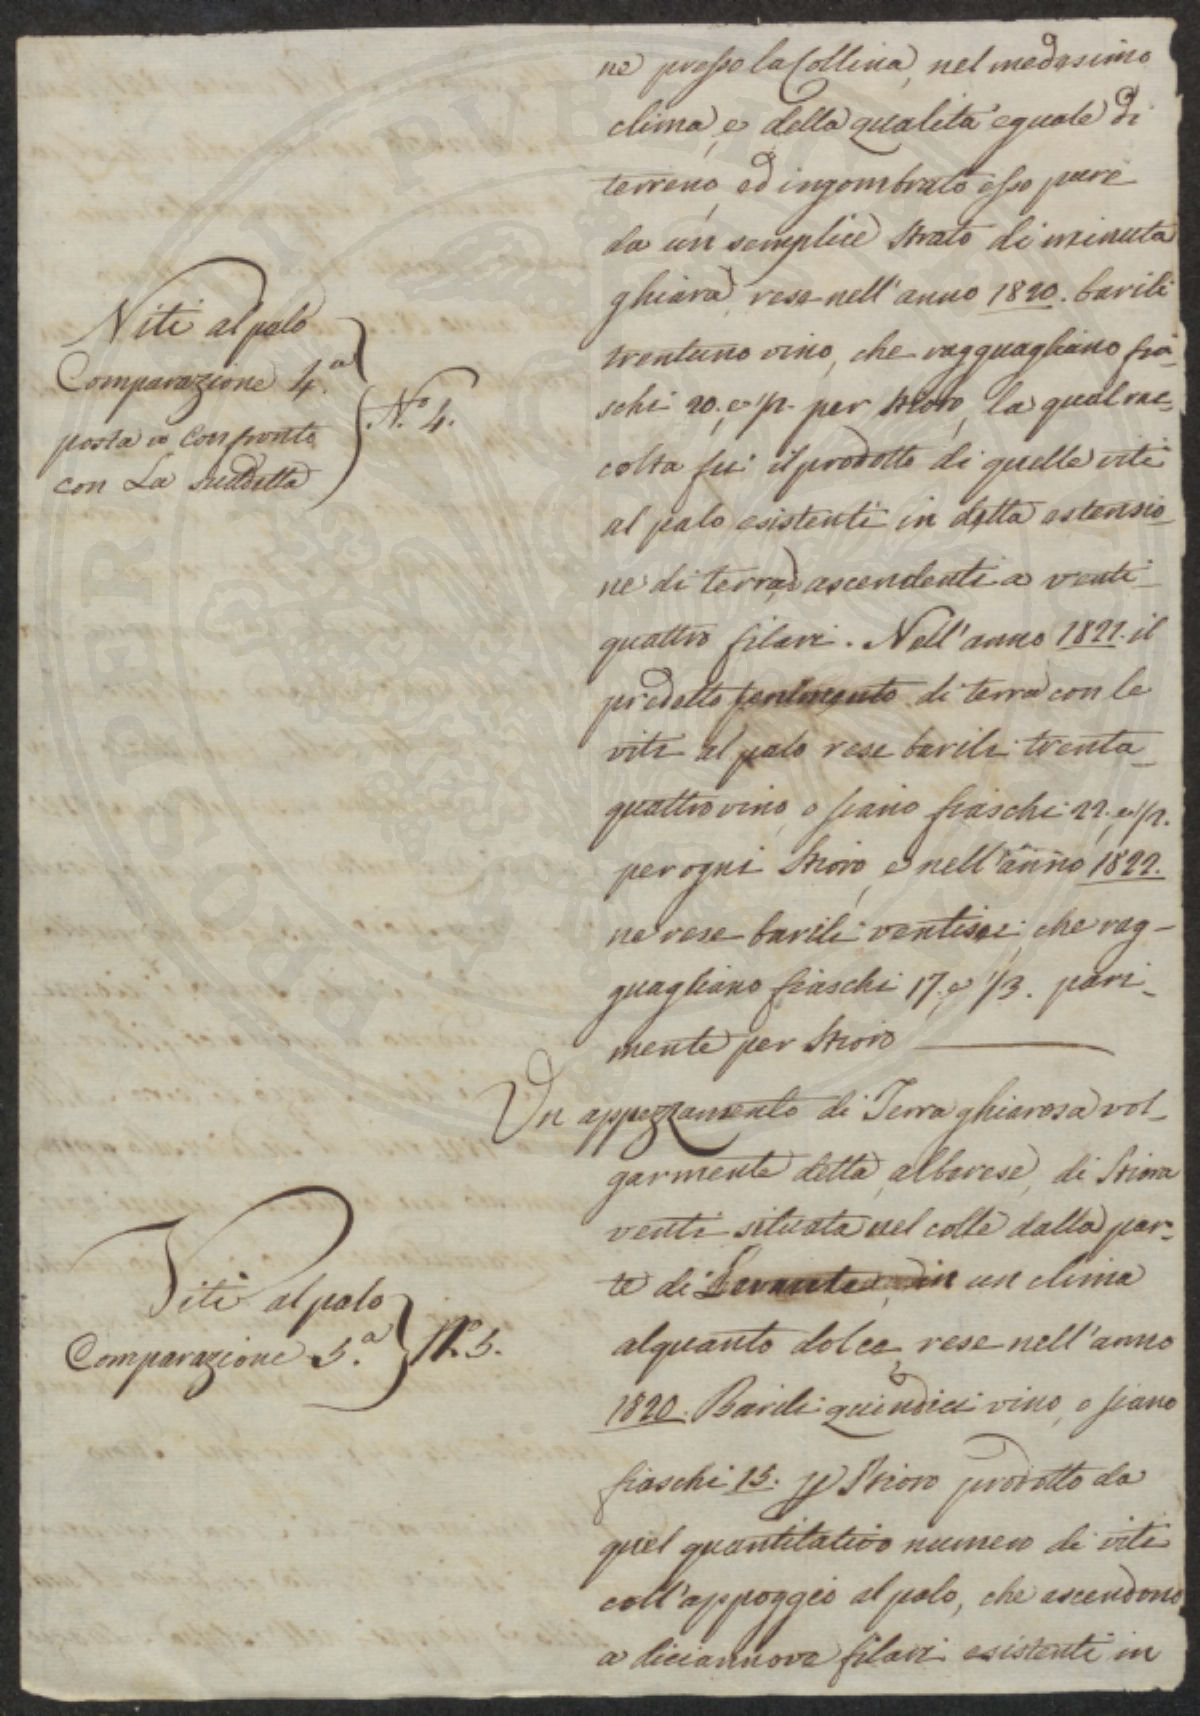 ne presso la Collina, nel medesimo
clima, e della qualità eguale di
terreno, ed ingombrato esso pure
da un semplice strato di minuta
ghiara, rese nell'anno 1820. barili
trentuno vino, che ragguagliano fia-
schi 20. e 1/2. per stioro, la qual rac-
colta fu il prodotto di quelle viti
al palo esistenti in detta estensio-
ne di terra, ascendenti a venti-
quattro filari. Nell'anno 1821. il
predetto di terra con le
viti al palo rese barili trenta-
quattro vino, o siano fiaschi 22. e 1/2.
per ogni stioro, e nell'anno 1822.
ne rese barili ventisei che rag-
guagliano fiaschi 17. e 1/3. pari-
mente per stioro
Viti al palo
Comparazione 4.a
posta a Confronto
con La suddetta
N.o 4.
Un appezzamento di Terra ghiarosa vol-
garmente detta, alberese, di stiora
venti situata nel colle dalla par-
te di Levante, in un clima
alquanto dolce, rese nell'anno
1820. Barili quindici vino, o siano
fiaschi 15. p Stioro prodotto da
quel quantitativo numero di viti
coll'appoggio al palo, che ascendono
a diciannove filari esistenti in
Viti al palo
Comparazione 5.a
N.o 5.
PVBLICE
PROSPERITATI